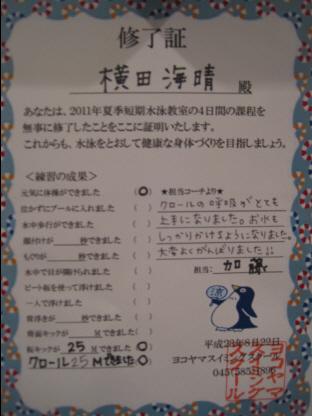 修了証
横田海晴 殿
あなたは、2011年夏季短期水泳教室の4日間の課程を
無事に修了したことをここに証明いたします。
これからも、水泳をとおして健康な身体づくりを目指しましょう。
<練習の成果>
元気に体操ができました (○)
泣かずにプールに入れました ( )
水中歩行ができました ( )
顔付けが___秒できました ( )
もぐりが___秒できました ( )
水中で目が開けられました ( )
ビート板を使って浮けました ( )
一人で浮けました ( )
背浮きが___秒できました ( )
背面キックが___Mできました ( )
板キックが 25 Mできました (○)
クロール25Mできました (○)
★担当コーチより★
クロールの呼吸がとても
上手になりました。お水も
しっかりかけるようになりました。
大変よくがんばりました!!
担当: 加藤
平成23年8月22日
ヨコヤマスイミングスクール
045(585)1898
ヨコヤマ
スイミング
スクール